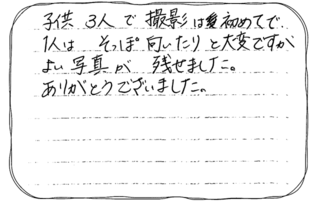 子供 3人で 撮影は初めてで、
1人は そっぽ向いたりと大変ですが
よい写真が 残せました。
ありがとうございました。